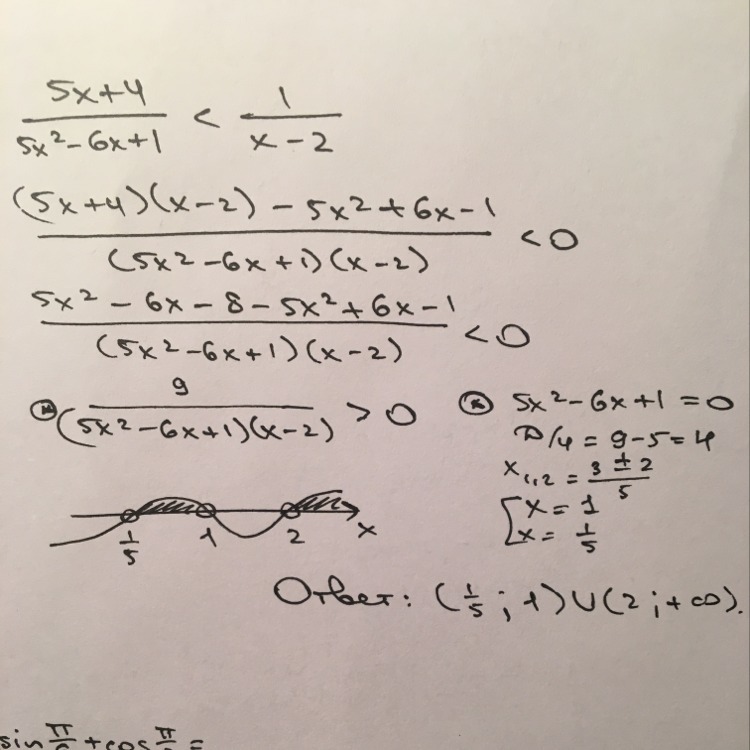 (5x+4)/(5x²-6x+1) < 1/(x-2)
((5x+4)(x-2) - 5x²+6x-1)/((5x²-6x+1)(x-2)) < 0
(5x² - 6x - 8 - 5x² + 6x - 1)/((5x²-6x+1)(x-2)) < 0
9/((5x²-6x+1)(x-2)) > 0
5x²-6x+1=0
D/4 = 9-5=4
x₁,₂ = (3 ± 2)/5
[x = 1
[x = 1/5
1/5 1 2 x
Ответ: (1/5 ; 1)∪(2 ; +∞).